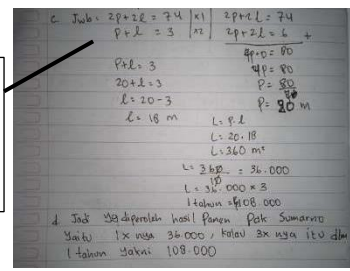 c. Jwb: 2p+2l = 74 |x1| 2p+2l = 74
p+l = 3 |x2| 2p+2l = 6 +
4p+0 = 80
P+l = 3
4P = 80
20+l = 3
P = 80
l = 20-3
P = 20 m
l = 18 m
L = P.l
L = 20.18
L = 360 m²
L = 360 = 36.000
10
L = 36.000 x 3
1 tahun = 108.000
d. Jadi yg diperoleh hasil Panen Pak Sumarno
yaitu 1x nya 36.000, kalau 3x nya itu dlm
1 tahun yakni 108.000